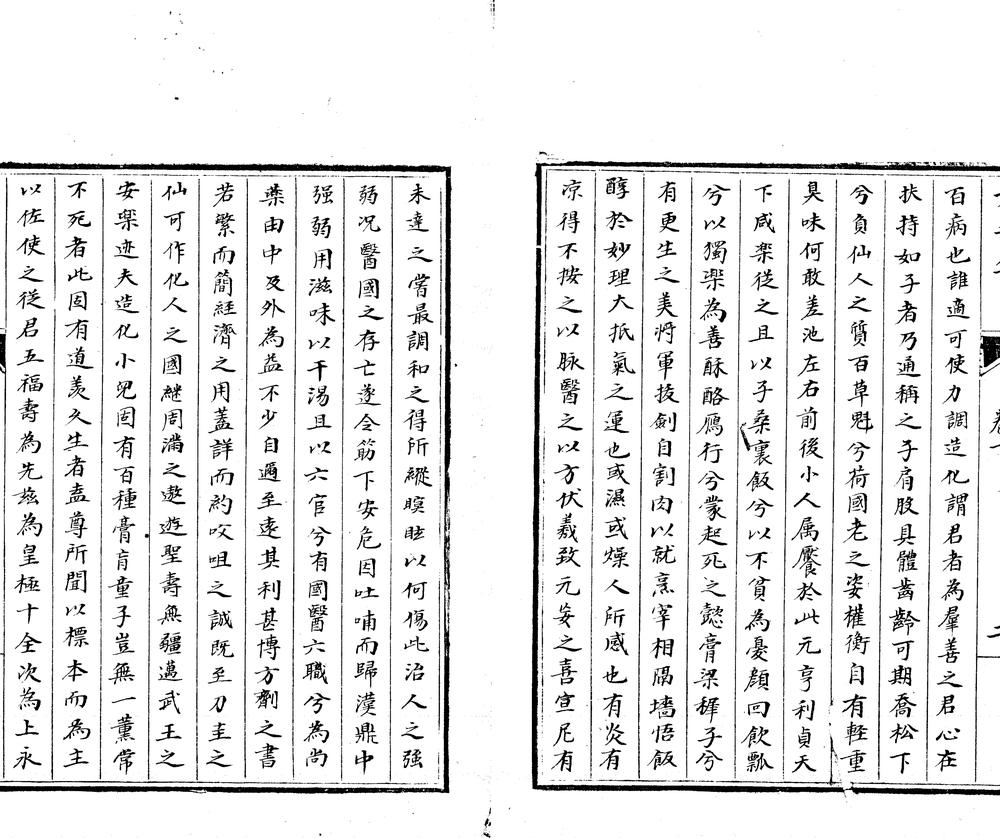 百病也誰適可使力調造化謂君者為羣善之君心在
扶持如子者乃通稱之子肩股具體齒齡可期喬松下
兮負仙人之質百草魁兮荷國老之姿權衡自有輕重
臭味何敢差池左右前後小人属饜於此元亨利貞天
下咸楽従之且以子桑裹飯兮以不貧為憂顔回飲瓢
兮以獨楽為善酥酪鴈行兮蒙起死之懿膏梁穉子兮
有更生之美将軍抜劍自割肉以就烹宰相隔墻悟飯
醇於妙理大抵氣之運也或濕或燥人所感也有炎有
凉得不按之以脉醫之以方伏羲致元妄之喜宣尼有
未達之嘗最調和之得所縱瞑眩以何傷此治人之強
弱况醫國之存亡遂令筯下安危因吐哺而歸漢鼎中
强弱用滋味以干湯且以六官兮有國醫六職兮為尚
薬由中及外為益不少自邇至遠其利甚博方劑之書
若繁而簡経濟之用蓋詳而約㕮咀之誠既至刀圭之
仙可作化人之國継周満之遨遊聖壽無疆邁武王之
安楽迹夫造化小兒固有百種膏肓童子豈無一薫常
不死者此固有道羨久生者盍尊所聞以標本而為主
以佐使之従君五福壽為先兹為皇極十全次為上永